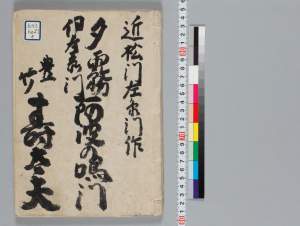 近松門左衛門作
夕霧阿波の鳴門
伊左衛門
豊竹
寿太夫